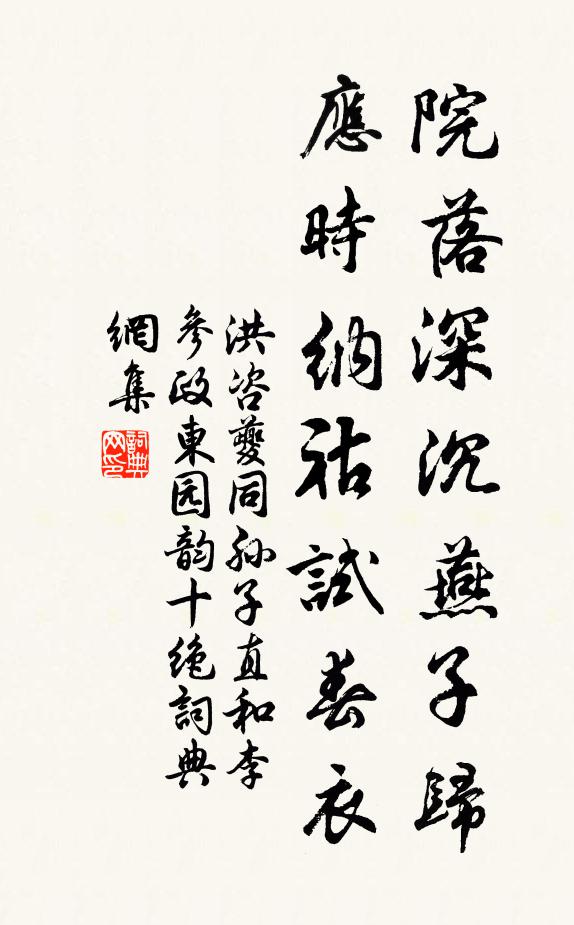 院落深沉燕子歸
應時納祜試春衣
洪咨夔同孙子直和李
參政東园韵十绝詞典
網集
詞典
网印